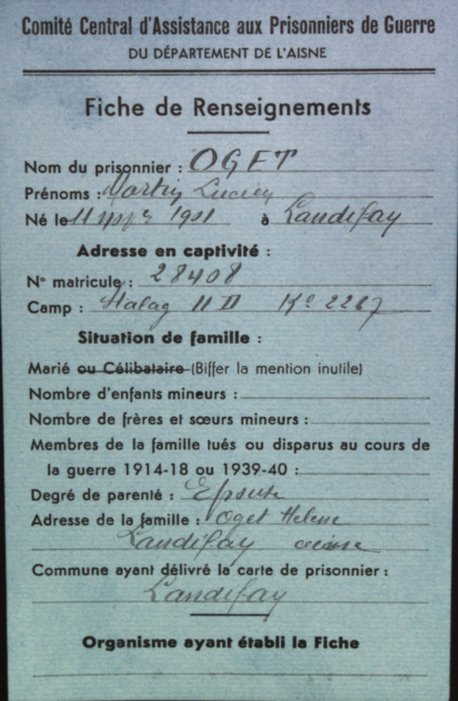 Comité Central d'Assistance aux Prisonniers de Guerre
DU DÉPARTEMENT DE L'AISNE
Fiche de Renseignements
Nom du prisonnier : OGET
Prénoms : Lucien
Né le 11 1901 à Landifay
Adresse en captivité :
N° matricule : 28408
Camp : Stalag II D Kº 2267
Situation de famille :
Marié ou Célibataire (Biffer la mention inutile)
Nombre d'enfants mineurs :
Nombre de frères et sœurs mineurs :
Membres de la famille tués ou disparus au cours de
la guerre 1914-18 ou 1939-40 :
Degré de parenté :
Adresse de la famille : Oget Helene
Landifay aisne
Commune ayant délivré la carte de prisonnier :
Landifay
Organisme ayant établi la Fiche